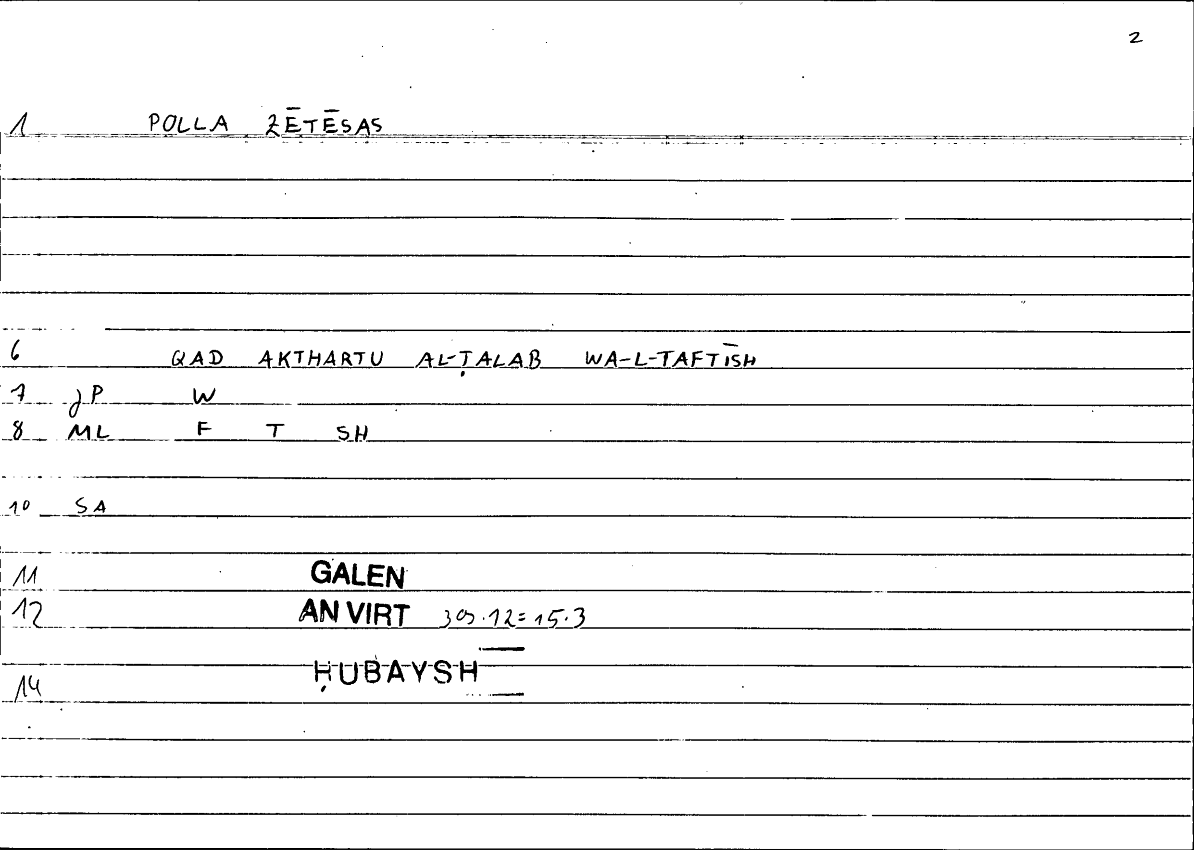 2
1 POLLA ZĒTĒSAS
6 QAD AKTHARTU AL-ṬALAB WA-L-TAFTĪSH
7 JP W
8 ML F T SH
10 SA
11 GALEN
12 AN VIRT 309.12=15.3
ḤUBAYSH
14